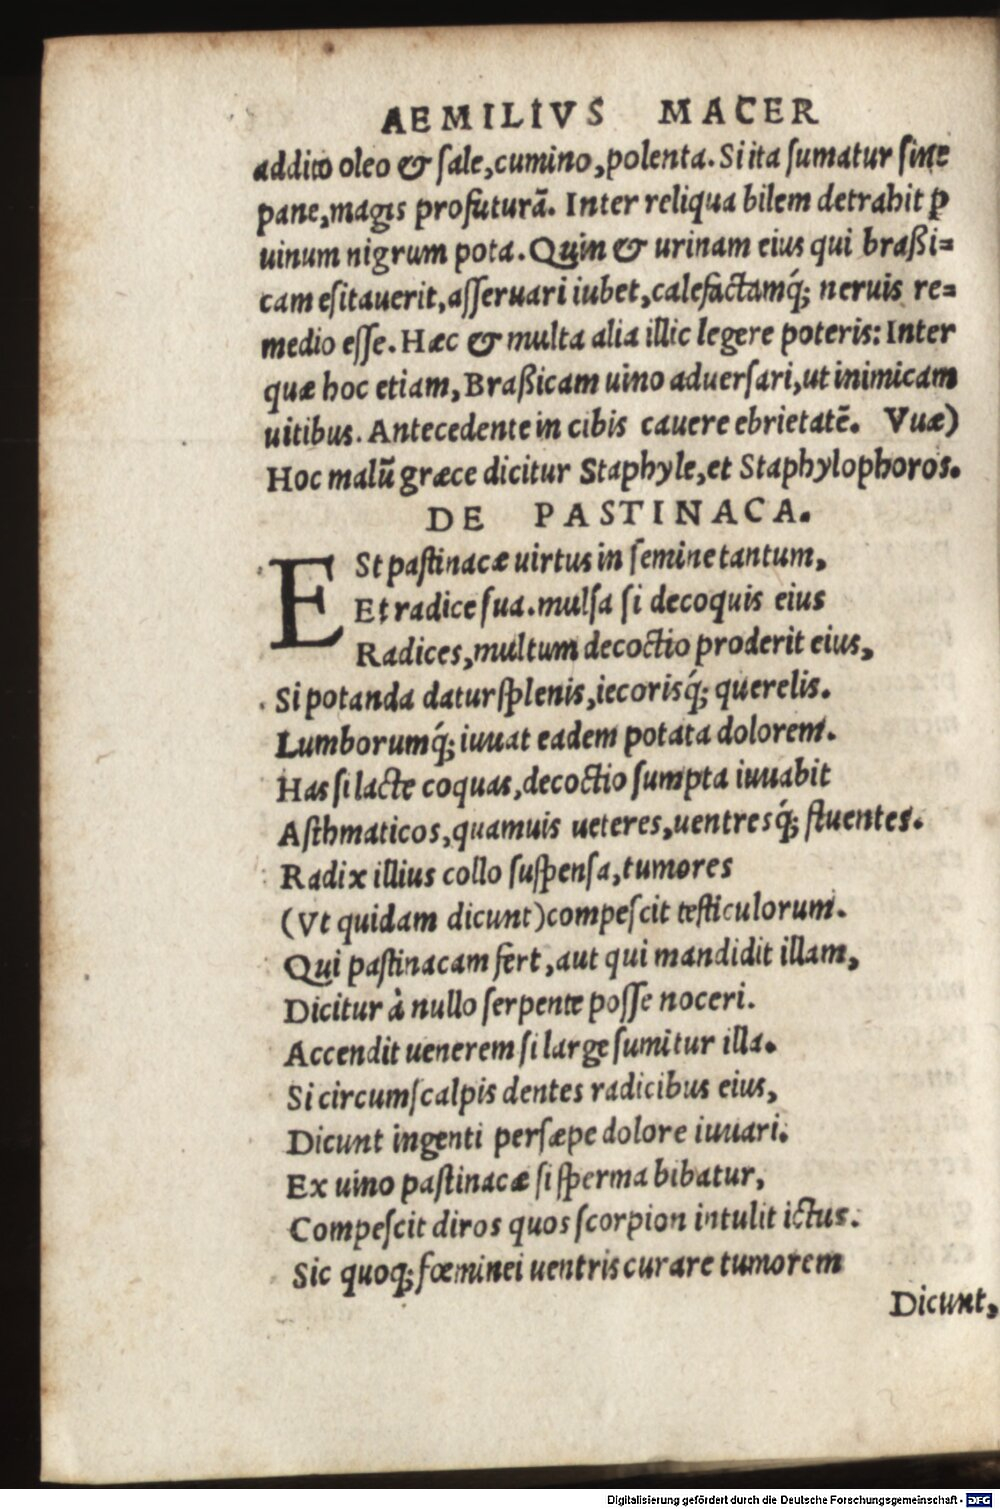 AEMILIVS MACER
addito oleo & sale, cumino, polenta. Si ita sumatur sine
pane, magis profuturã. Inter reliqua bilem detrahit ꝑ
uinum nigrum pota. Quin & urinam eius qui braßi=
cam esitauerit, asseruari iubet, calefactamq́; neruis re=
medio esse. Hæc & multa alia illic legere poteris: Inter
quæ hoc etiam, Braßicam uino aduersari, ut inimicam
uitibus. Antecedente in cibis cauere ebrietatẽ. Vuæ)
Hoc malũ græce dicitur Staphyle, et Staphylophoros.
DE PASTINACA.
ESt pastinacæ uirtus in semine tantum,
Et radice sua. mulsa si decoquis eius
Radices, multum decoctio proderit eius,
Si potanda datur splenis, iecorisq́; querelis.
Lumborumq́; iuuat eadem potata dolorem.
Has si lacte coquas, decoctio sumpta iuuabit
Asthmaticos, quamuis ueteres, uentresq́; fluentes.
Radix illius collo suspensa, tumores
(Vt quidam dicunt) compescit testiculorum.
Qui pastinacam fert, aut qui mandidit illam,
Dicitur à nullo serpente posse noceri.
Accendit uenerem si large sumitur illa.
Si circumscalpis dentes radicibus eius,
Dicunt ingenti persæpe dolore iuuari.
Ex uino pastinacæ si sperma bibatur,
Compescit diros quos scorpion intulit ictus.
Sic quoq; fœminei uentris curare tumorem
Dicunt,
Digitalisierung gefördert durch die Deutsche Forschungsgemeinschaft - DFG